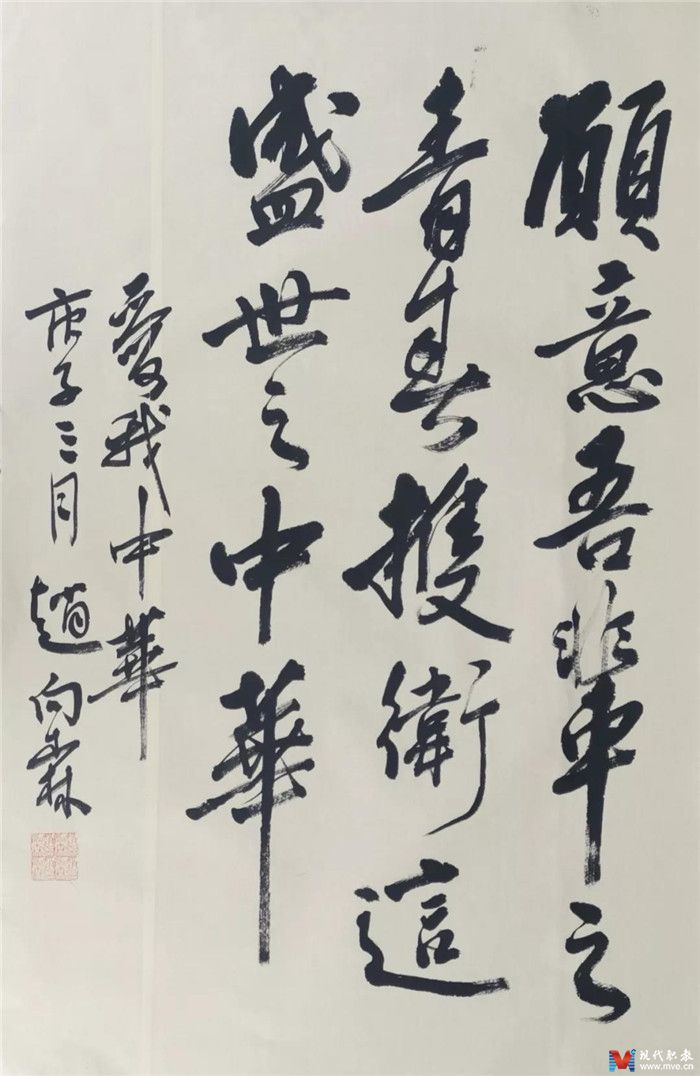 願意吾輩之
青春擭衛這
盛世之中華
愛我中華
庚子三月 趙向霖
现代职教
www.mve.cn